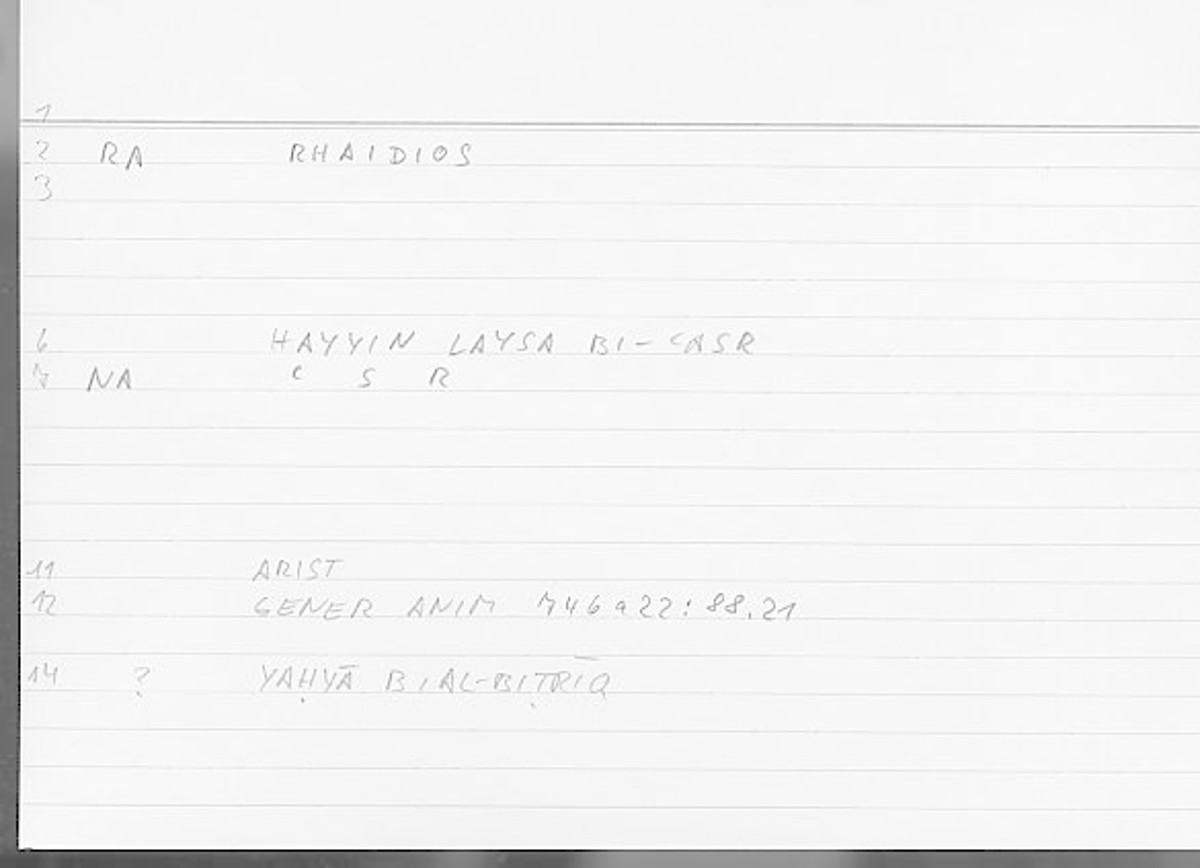 1
2 RA RHAIDIOS
3
6 HAYYIN LAYSA BI-ʿASR
7 NA ʿ S R
11 ARIST
12 GENER ANIM 746a22:88.21
14 ? YAḤYĀ B IAL-BIṬRĪQ